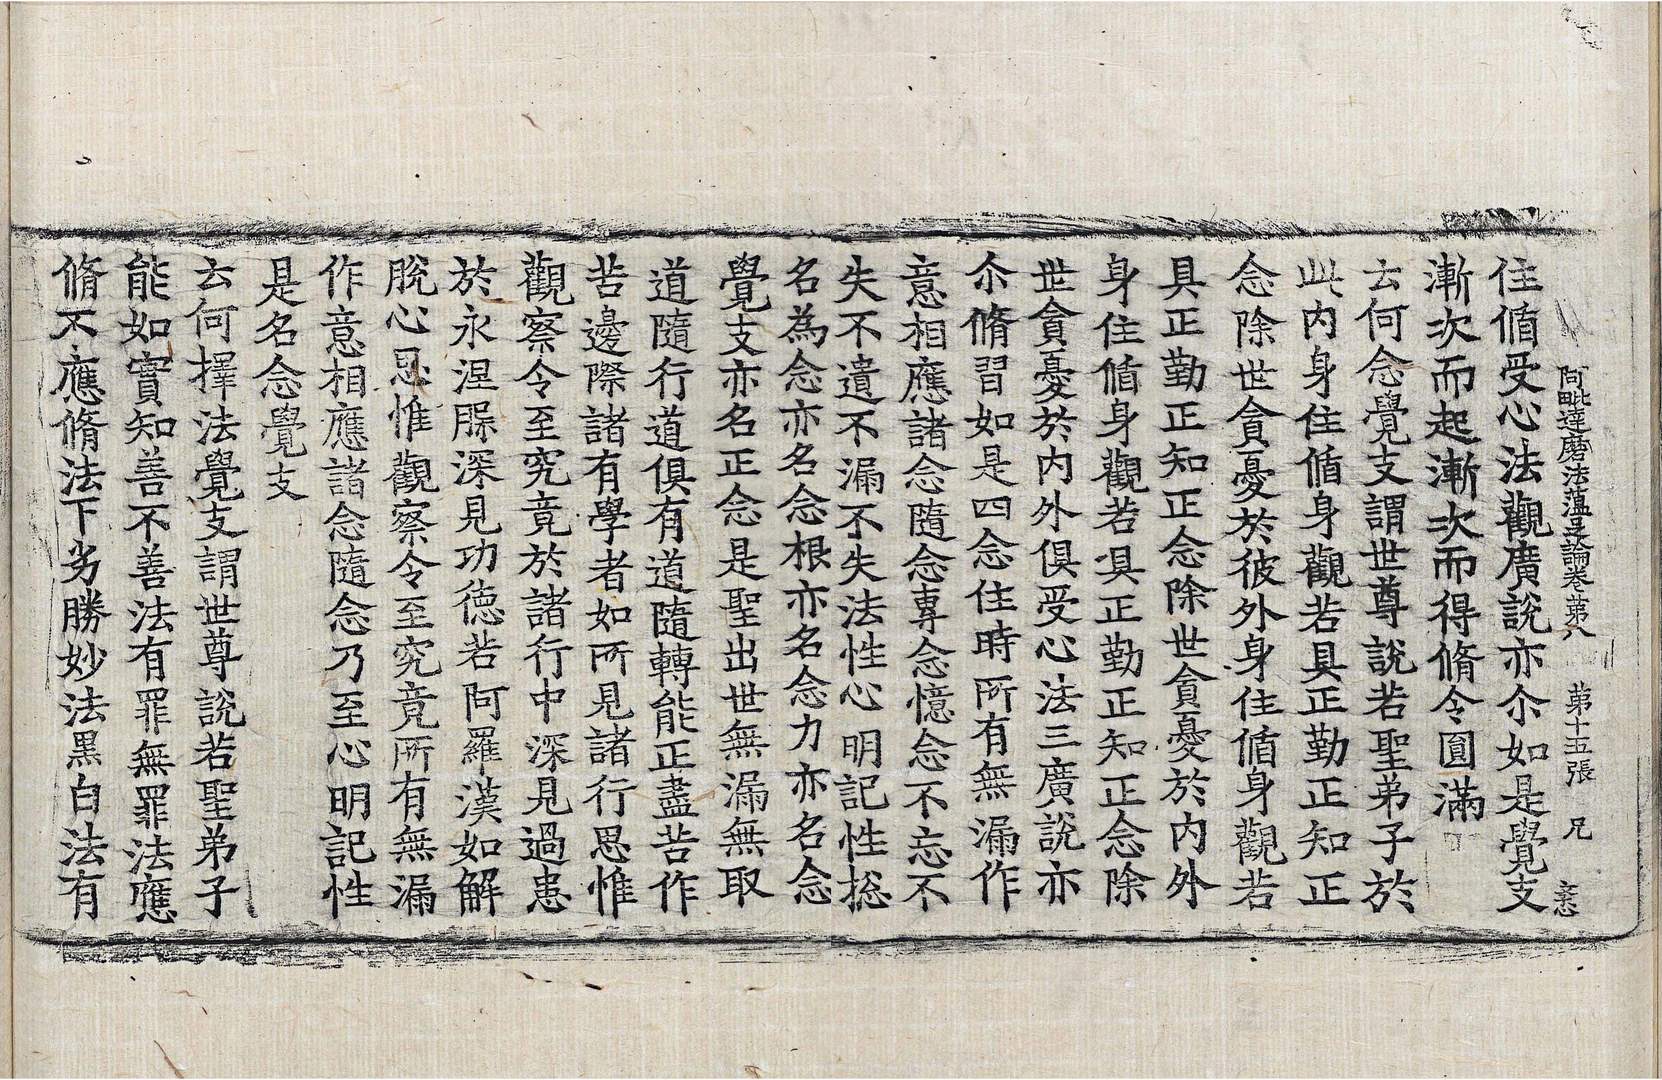 阿毗達磨法蘊足論卷第八　第十五張　兄
住循受心法觀廣說亦尒如是覺支
漸次而起漸次而得脩令圓滿
云何念覺支謂世尊說若聖弟子於
此內身住循身觀若具正勤正知正
念除世貪憂於彼外身住循身觀若
具正勤正知正念除世貪憂於內外
身住循身觀若具正勤正知正念除
世貪憂於內外俱受心法三廣說亦
尒脩習如是四念住時所有無漏作
意相應諸念隨念專念憶念不忘不
失不遺不漏不失法性心明記性揔
名為念亦名念根亦名念力亦名念
覺支亦名正念是聖出世無漏無取
道隨行道俱有道隨轉能正盡苦作
苦邊際諸有學者如所見諸行思惟
觀察令至究竟於諸行中深見過患
於永涅槃深見功德若阿羅漢如解
脫心思惟觀察令至究竟所有無漏
作意相應諸念隨念乃至心明記性
是名念覺支
云何擇法覺支謂世尊說若聖弟子
能如實知善不善法有罪無罪法應
脩不應脩法下劣勝妙法黑白法有